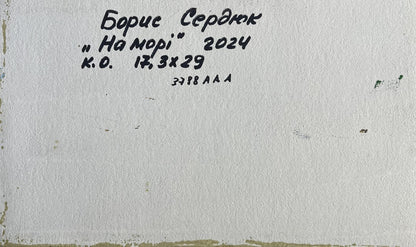 Борис Сердюк
„На морі" 2024
к.о. 17,3х29
3788 А А А